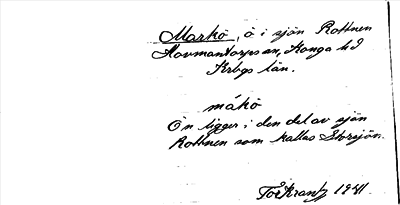 Markö, ö i sjön Rottnen
Hovmantorps sn, Konga hd
Krbgs län.
mákö
Ön ligger i den del av sjön
Rottnen som kallas Storsjön.
Krantz 1941.